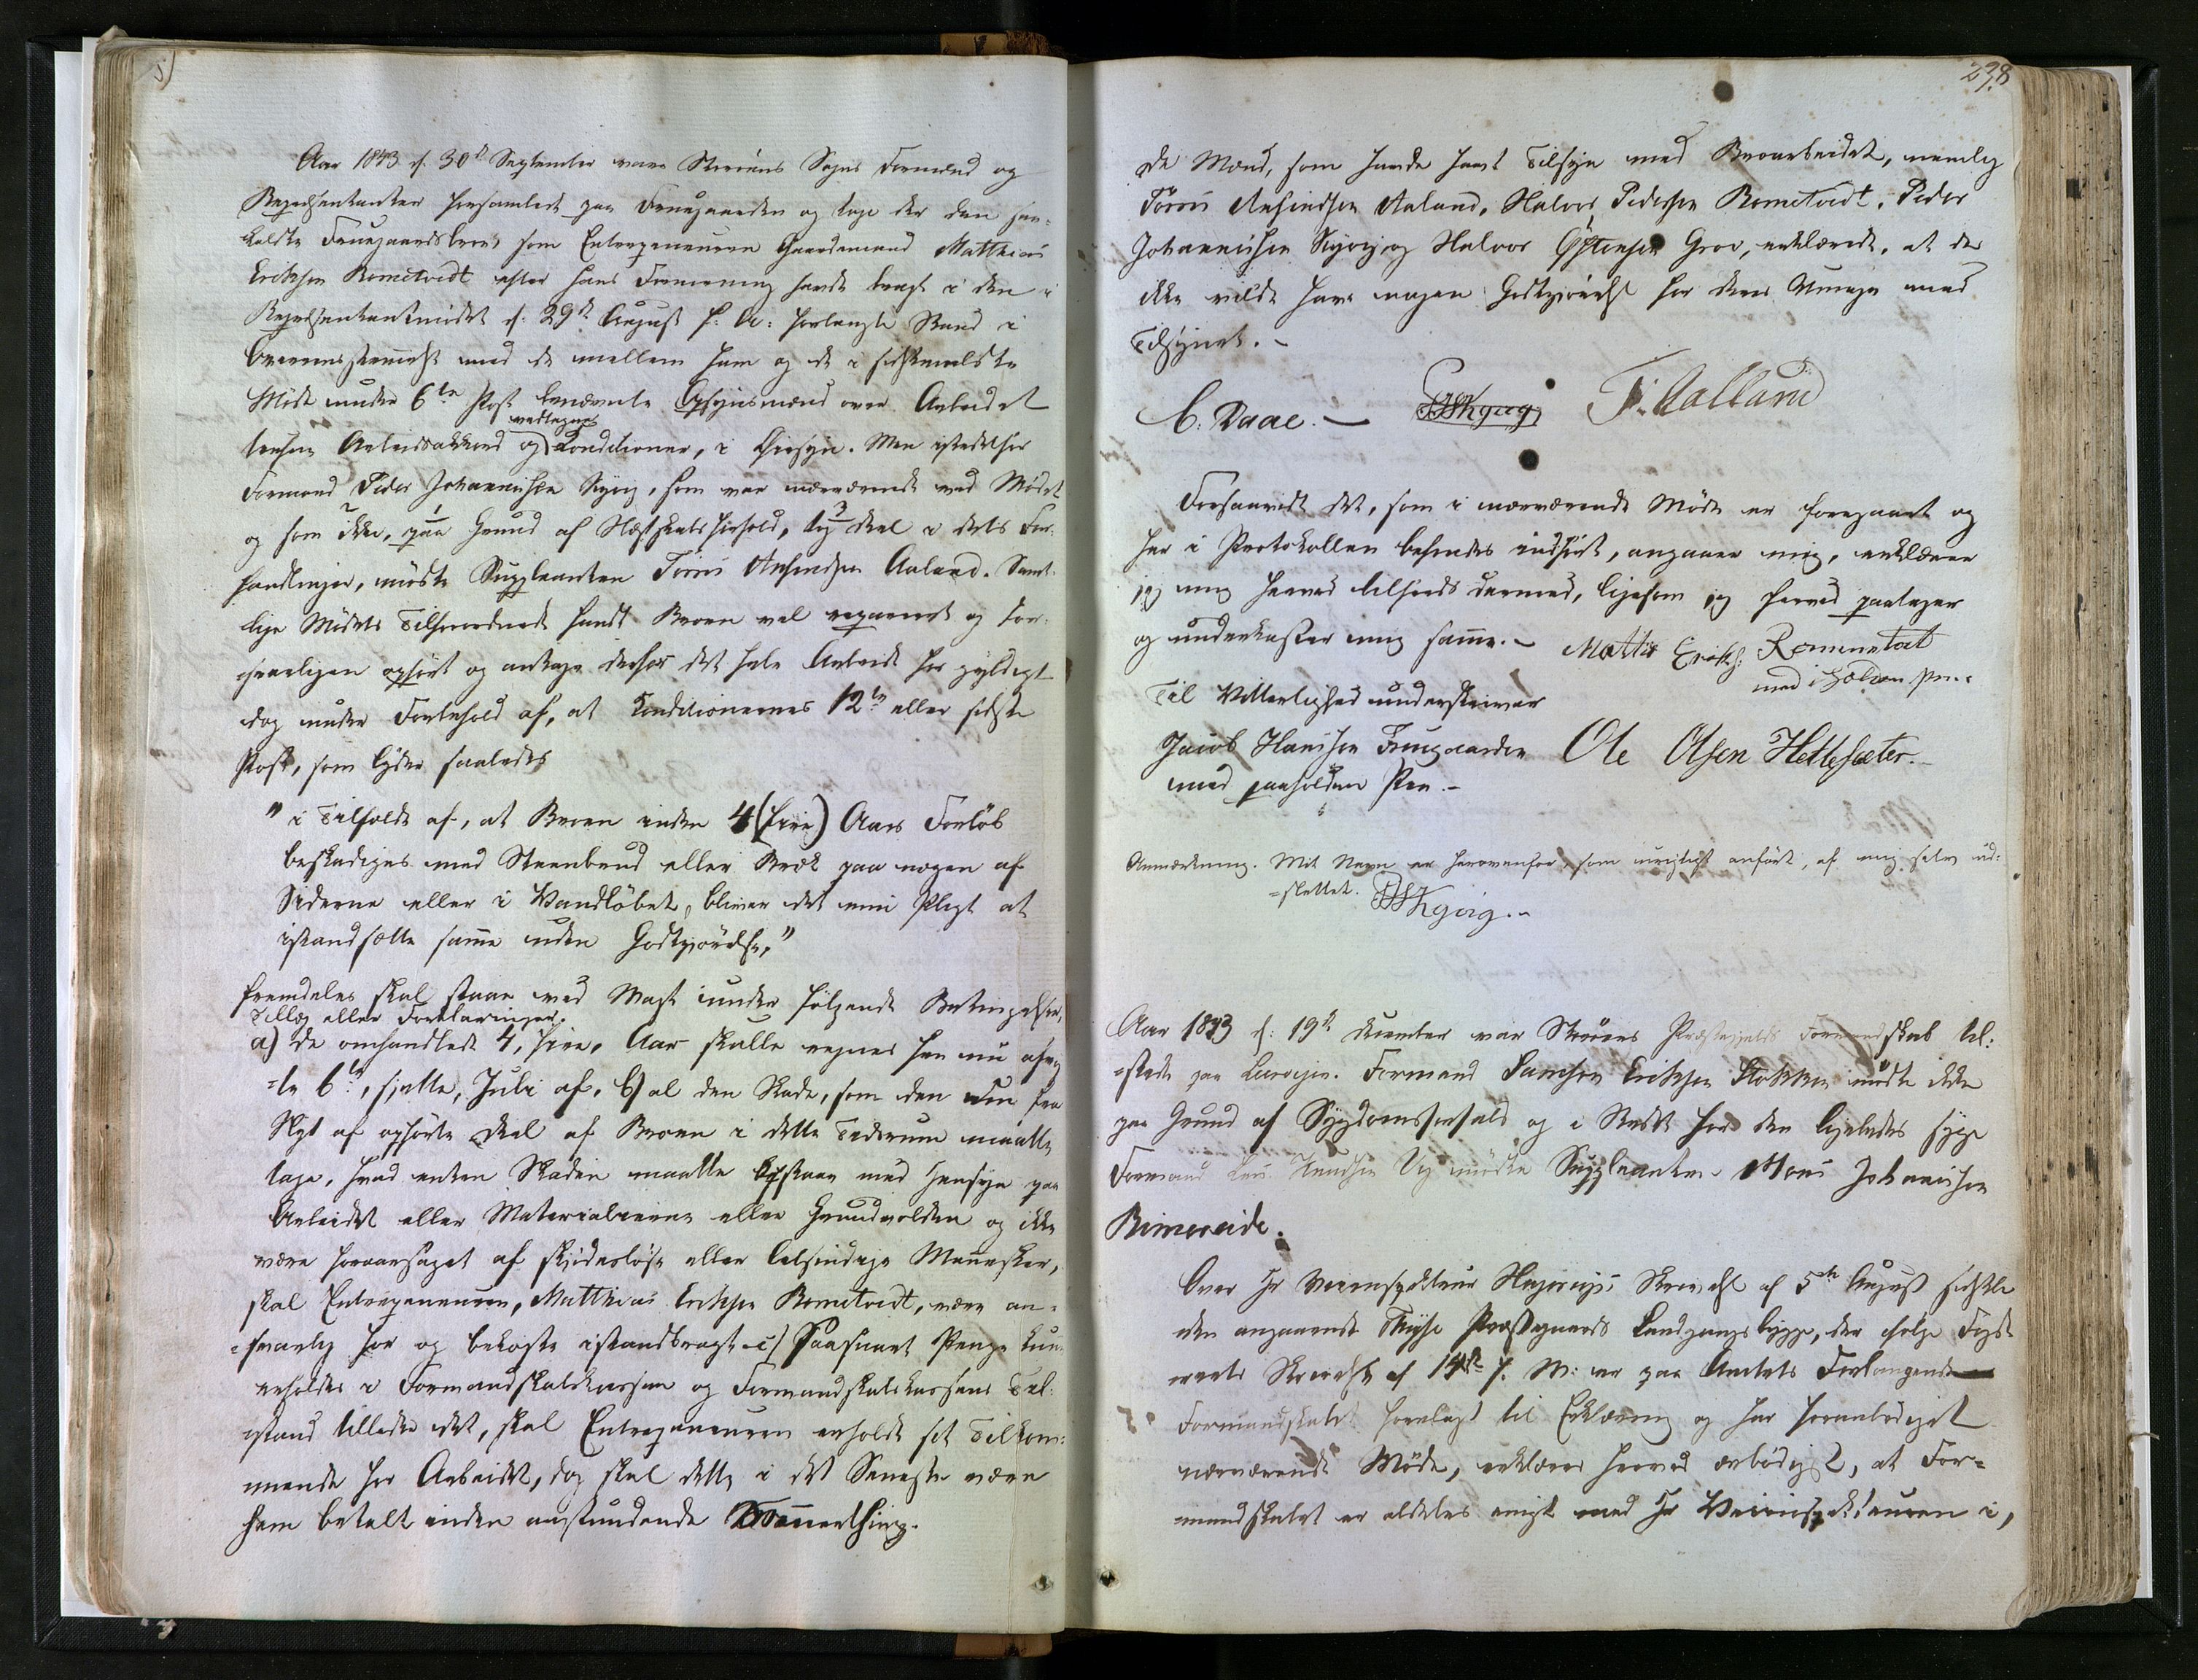 5)
Aar 1843 d. 30te September vare Skruens Sogns Formænd og
Repræsentanter forsamlede paa Fruegaarden og toge der den saa-
kaldte Fruegaardsbroe, som Entrepreneuren Gaardmand Matthias
Eriksen Rometvedt efter hans Formening havde bragt i den i
Repræsentantmødet d: 29de August f: A: forlangte Stand i
Overensstemmelse med de mellem ham og de i sidstmeldte
Møde under 6te Post benævnte Opsynsmænd over Arbeidet
Arbeidsakkord og vedtagne Konditioner, i Øiesyn. Men istedetfor
Formand Peder Johannessen Nygrg, som var nærværende ved Mødet
og som ikke, paa Grund af Slægtskabsforhold, tog Deel i dets For-
handlinger, mødte Suppleanten Tørris Anfindsen Aaland. Samt-
lige Mødets Tilforordnede fandt Broen vel repareret og for-
svarligen opført og antage derfor det hele Arbeide for gyldigt
dog under Forbehold af, at Konditionernes 12te eller sidste
Post, som lyder saaledes
"i Tilfælde af, at Broen inden 4 (fire) Aars Forløb
beskadiges med Steenbrud eller Bræk paa nogen af
Siderne eller i Vandløbet, bliver det min Pligt at
istandsætte samme uden Godtgjørelse,"
fremdeles skal staae ved Magt under følgende Betingelser,
Tillæg eller Forklaringer.
a) De omhandlede 4, fire, Aar skulle regnes fra nu afvig-
-te 6te, sjette, Juli af. b) al den Skade, som den nu fra
Nyt af opførte Deel af Broen i dette Tidsrum maatte
tage, hvad enten Skaden maatte opstaae med Hensyn paa
Arbeidet eller Materialierne eller Grundvolden og ikke
være foraarsaget af skjødesløse eller letsindige Mennesker,
skal Entrepreneuren, Matthias Eriksen Rometvedt, være an-
-svarlig for og bekoste istandbragt c) Saasnart Penge kun
erholdes i Formandskabskassen og Formandskabskassens Til-
stand tillader det, skal Entrepreneuren erholde sit Tilkom-
mende for Arbeidet, dog skal dette i det Seneste være
ham betalt inden anstundende Sommerthing.
238
de Mænd, som havde havt Tilsyn med Broarbeidet, nemlig
Tørris Anfindsen Aaland, Halvor Pedersen Rometvedt, Peder
Johannessen Nygrg og Halvor Østensen Grov, erklærede, at de
ikke vilde have nogen Godtgjørelse for deres Umage med
Tilsynet.-
C. Daae.- T. Aalland
Forsaavidt det, som i nærværende Møde er foregaaet og
her i Protokollen befindes indført, angaaer mig, erklærer
jeg mig herved tilfreds dermed, ligesom jeg herved paatager
og underkaster mig samme.- Mattis Eriks: Romenetvet
med i Holden pen.
Til Vitterlighed underskriver
Jacob Hansen Fruegaarden Ole Olsen Hettesæter.-
med paaholden Pen.-
Anmærkning. Mit Navn er herovenfor, som urigtigt anført, af mig selv ud-
-slettet.
Aar 1843 d: 19de var Skruens Præstegjelds Formandskab til-
-stede paa. Formand Samson Eriksen Stokken mødte ikke
paa Grund af Sygdomsforfald og i Stedet for den ligeledes syge
Formand Knudsen Vig mødte Suppleanten Mons Johannesen
Rimereide.
Over Hr Veiinspekteur Skrivelse af 5te August sidstle-
den angaaende Præstegaards Landgangsbrygge, der ifølge Fogde-
riets Skrivelse af 14de f. M: er paa Amtets Forlangende
Formandskabet forelagt til Erklæring og har foranlediget
nærværende Møde, erklæres herved ærbødigst, at For-
mandskabet er aldeles enigt med Hr Veiinspekteuren i,